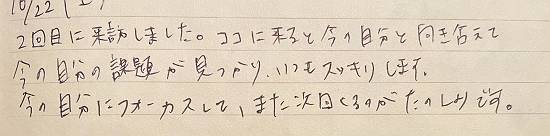 10/22 (土)
2回目に来訪しました。ココに来ると今の自分と向き合えて
今の自分の課題が見つかり、いつもスッキリします。
今の自分にフォーカスして、また次回くるのがたのしみです。